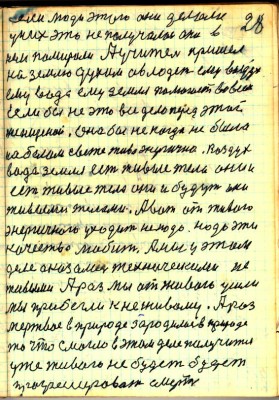 28
если люди этого они делали
у них это не получалось они в
нем помирали А учитель пришел
на землю духом овладел ему воздух
ему вода ему земля помогает во всем
если бы не это все дело перед этой
женщиной. она бы некогда не была
на белом свете жива энергична. Воздух
вода земля есть живые тела они и
есть живые тела они и будут они
живыми телами. А вот от живого
энергичного уходить не надо. надо это
качество любить. А мы у этом
деле оказались технические не
живыми А раз мы от живого ушли
мы прибегли к неживому. А раз
мертвое в природе зародилось в природе
то что смогло в этом деле получится
уже живого не будет будет
прогрессировать смерть